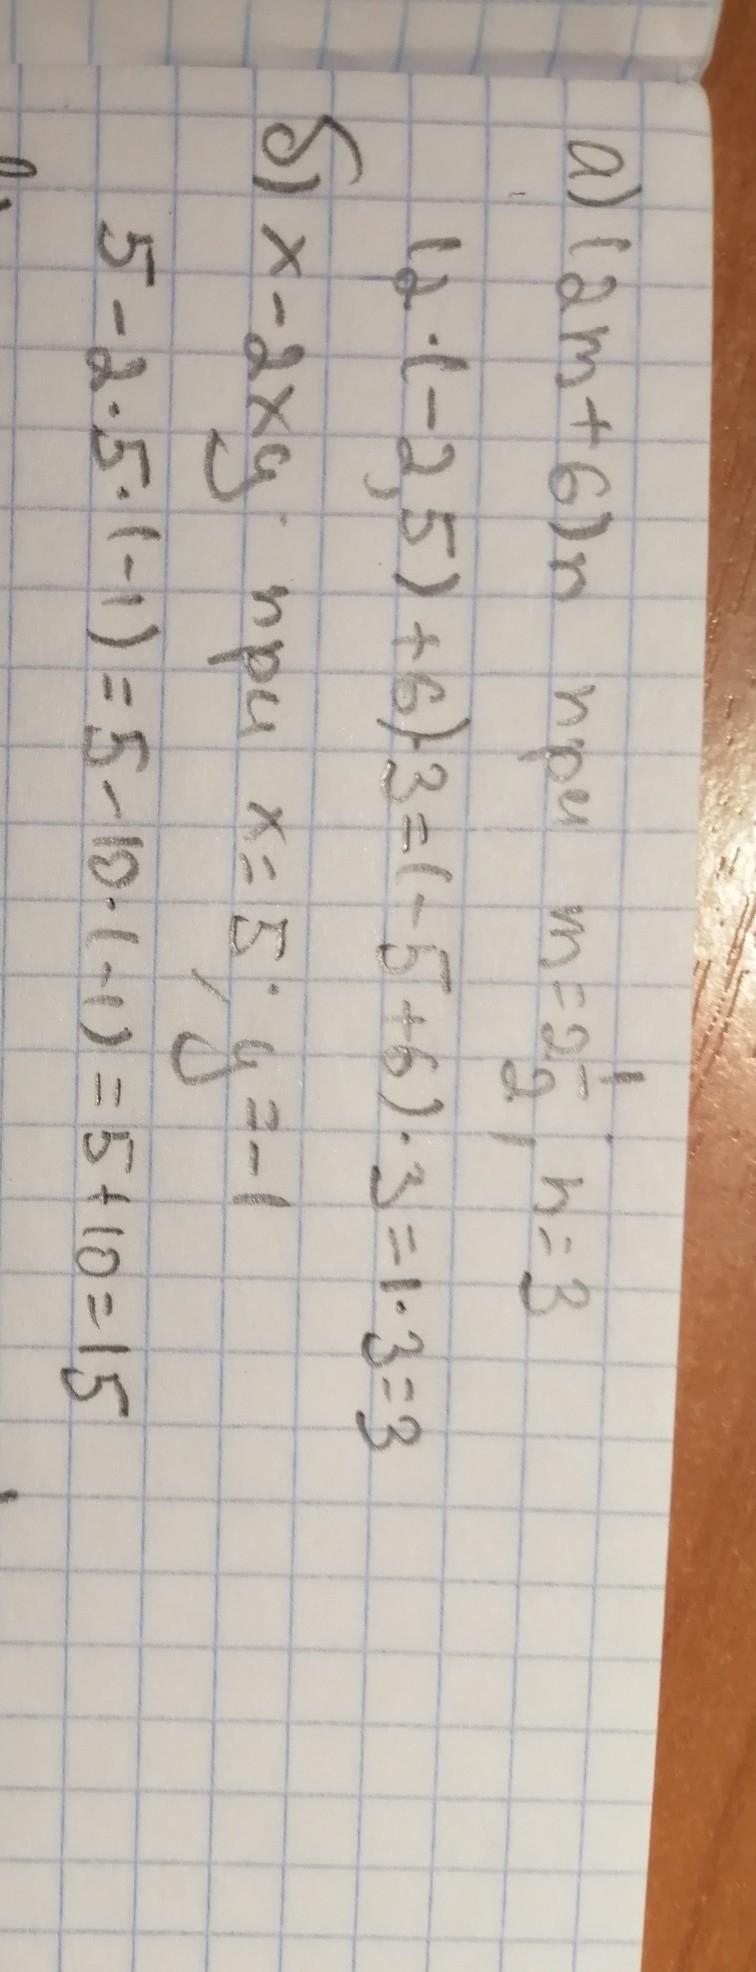 а) (2m+6)n при m=2 1/2; n=3
(2·(-2,5)+6)·3=(-5+6)·3=1·3=3
б) x-2xy при x=5; y=-1
5-2·5·(-1)=5-10·(-1)=5+10=15